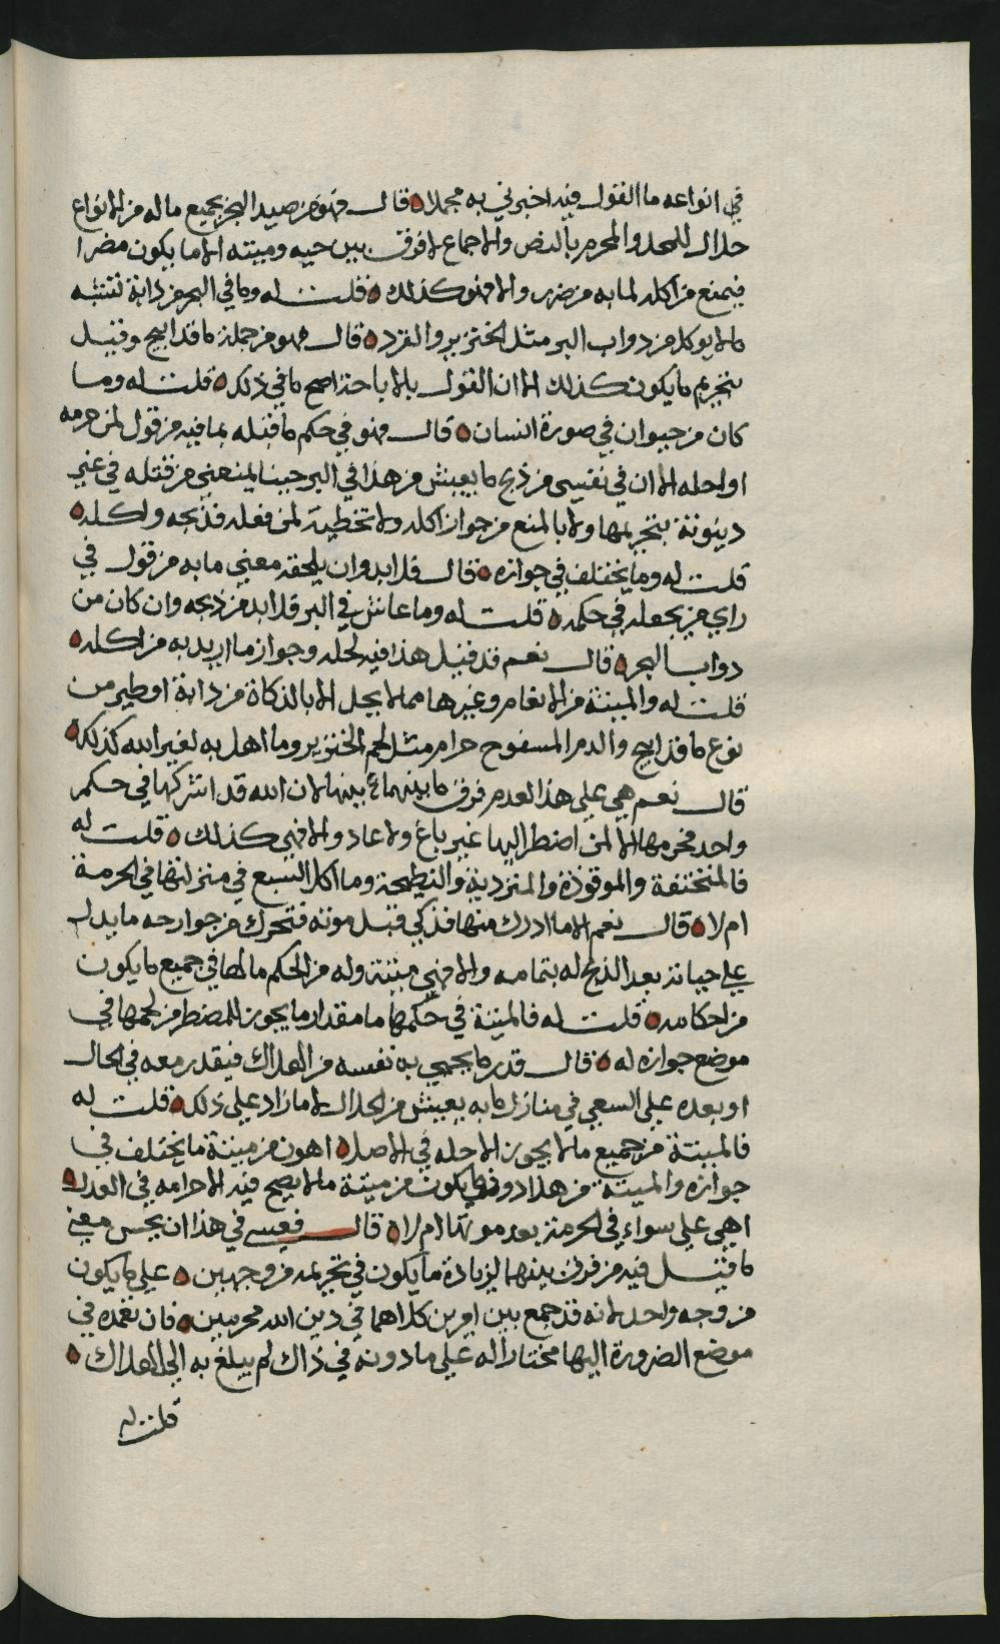 في انواعه ما القول فيه اخبرني به مجملا ه قال فهو من صيد البحر بجميع ماله من الانواع
حلال للمحل والمحرم بالنص والاجماع لا فرق بين حيه وميته الا ما يكون مضرا
فيمنع من اكله لما به من ضرر والا فهو كذلك ه قلت له وما في البحر من دابة تشبه
ما لا يوكل من دواب البر مثل الخنزير والقرد ه قال فهو من جملة ما قد ابيح وقيل
بتحريم ما يكون كذلك الا ان القول بالاباحة اصح ما في ذلك ه قلت له وما
كان من حيوان في صورة انسان ه قال فهو في حكم ما قبله بما فيه من قول لمن حرمه
او احله الا ان في نفسي من ذبح ما يعيش من هذا في البر حينا يمنعني من قتله في غير
دينونة بتحريمها ولا بالمنع من جواز اكله ولا تخطية لمن فعله فذبحه واكله ه
قلت له وما يختلف في جوازه ه قال فلا بد وان يلحقه معنى ما به من قول في
راي من يجعله في حكمه ه قلت له وما عاش في البر فلا بد من ذبحه وان كان من
دواب البحر ه قال نعم قد قيل هذا فيه لحله وجواز ما اريد به من اكله ه
قلت له والميتة من الانعام وغيرها مما لا يحل الا بالذكاة من دابة او طير من
نوع ما قد ابيح والدم المسفوح حرام مثل لحم الخنزير وما اهل به لغير الله كذلك ه
قال نعم هي على هذا لعدم فرق ما بينهما بينها لان الله قد اشركها في حكم
واحد فحرمها الا لمن اضطر اليها غير باغ ولا عاد والا فهي كذلك ه قلت له
فالمنخنقة والموقوذة والمتردية والنطيحة وما اكل السبع في منزلتها في الحرمة
ام لا ه قال نعم الا ما ادرك منها فذكي قبل موته فتحرك من جوارحه ما يدل
على حياته بعد الذبح له بتمامه والا فهي ميتة وله من الحكم ما لها في جميع ما يكون
من احكامه ه قلت له فالميتة في حكمها ما مقدار ما يجوز للمضطر من لحمها في
موضع جوازه له ه قال قدر ما يحيي به نفسه من الهلاك فيقدر معه في الحال
او بعده على السعي في منازل ما به يعيش من الحلال لا ما زاد على ذلك ه قلت له
فالميتة من جميع ما لا يجوز الا حله في الاصل ه اهون من ميتة ما يختلف في
جوازه والميتة من هذا دون ما يكون من ميتة ما لا يصح فيه الا حرامه في العدل ه
اهي على سواء في الحرمة بعد موتها ام لا ه قال فعسى في هذا ان يحسن معنى
ما قيل فيه من فرق بينهما لزيادة ما يكون في تحريمه من وجهين ه على ما يكون
من وجه واحد لانه قد جمع بين امرين كلاهما في دين الله محرمين ه فان تعمده في
موضع الضرورة اليها مختارا له على ما دونه في ذاك لم يبلغ به الى الهلاك ه
قلت له